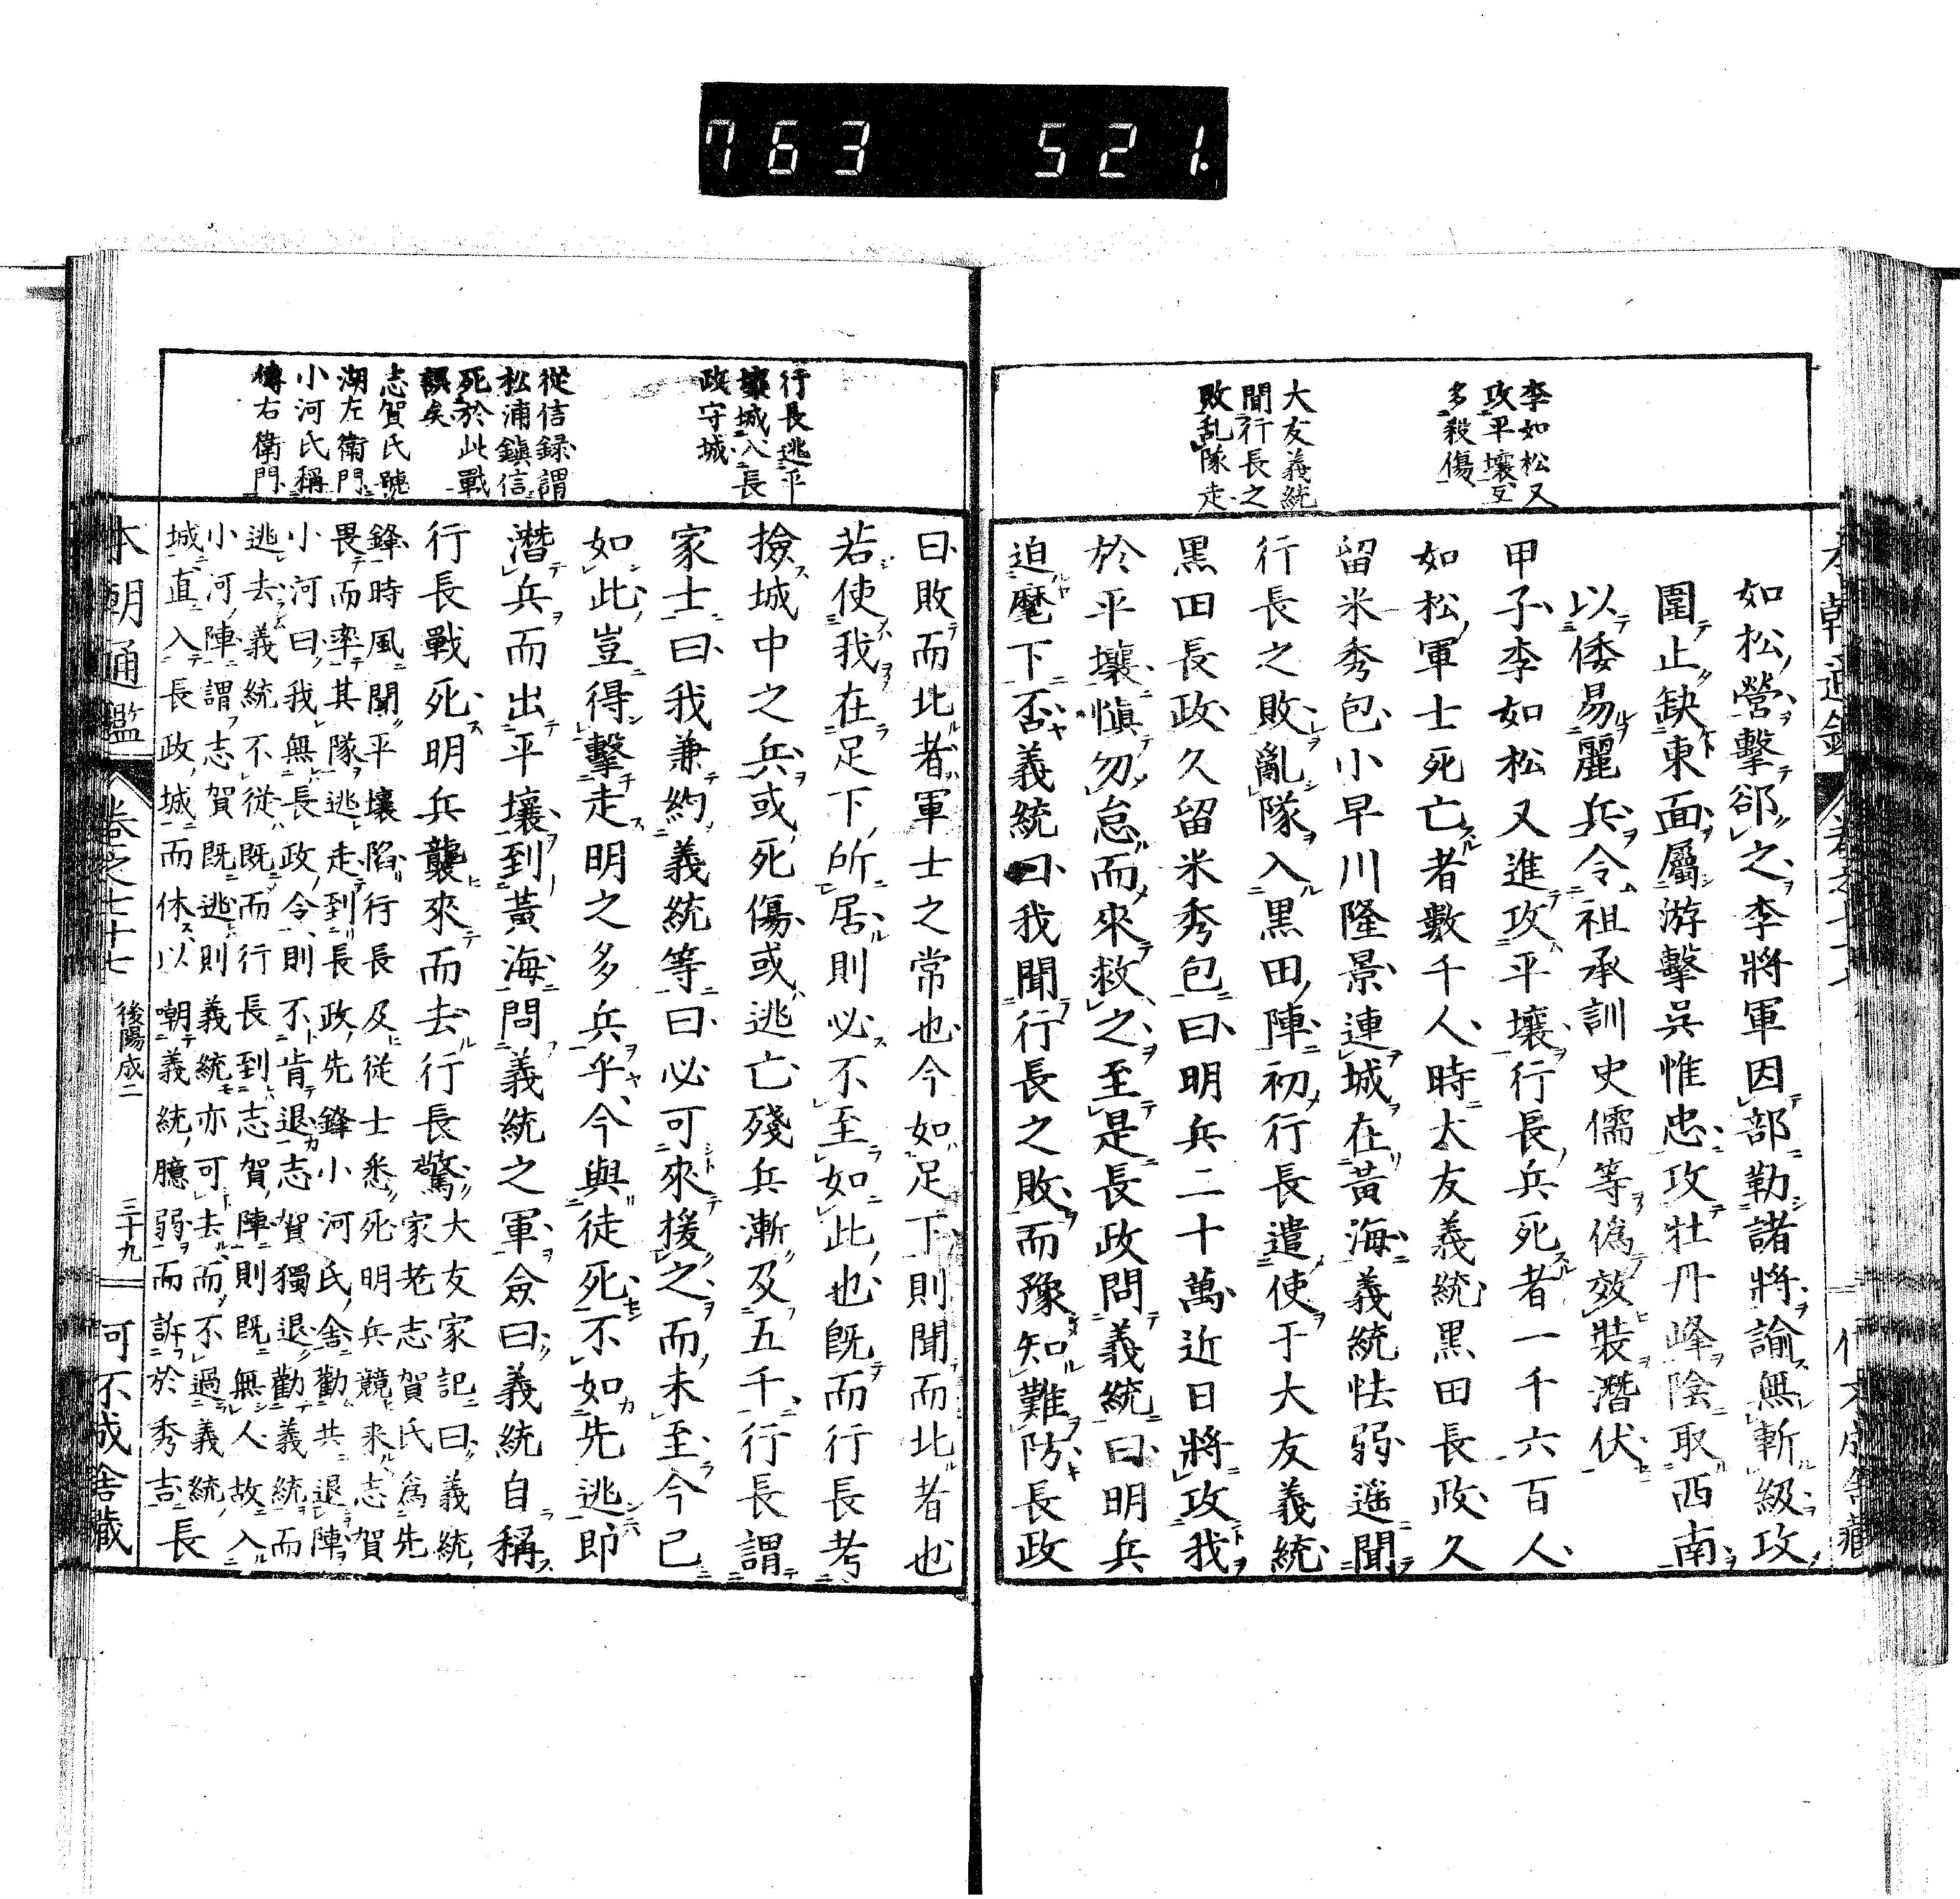 763 521.
李如松又
攻平壤互
多殺傷
大友義統
聞行長之
敗乱隊走
如松營擊郤之李將軍因部勒諸將諭無斬級攻
圍止缺東面屬游擊吳惟忠攻牡丹峰陰取西南
以倭易麗兵令祖承訓史儒等偽效裝潛伏
甲子李如松又進攻平壤行長兵死者一千六百人
如松軍士死亡者數千人時大友義統黒田長政久
留米秀包小早川隆景連城在黃海義統怯弱遥聞
行長之敗亂隊入黒田陣初行長遣使于大友義統
黒田長政久留米秀包曰明兵二十萬近日將攻我
於平壤愼勿怠而來救之至是長政問義統曰明兵
迫麾下否義統曰我聞行長之敗而豫知難防長政
行長逃平
壤城入長
政守城
從信録謂
松浦鎭信
死於此戰
誤矣
志賀氏號
湖左衛門
小河氏稱
傳右衛門
曰敗而北者軍士之常也今如足下則聞而北者也
若使我在足下所居則必不至如此也既而行長考
撿城中之兵或死傷或逃亡殘兵漸及五千行長謂
家士曰我兼約義統等曰必可來援之而未至今已
如此豈得擊走明之多兵乎今與徒死不如先逃即
潛兵而出平壤到黃海問義統之軍僉曰義統自稱
行長戰死明兵襲來而去行長驚大友家記曰義統
家老志賀氏爲先
鋒時風聞平壤陷行長及從士悉死明兵競來志賀
畏而率其隊逃走到長政先鋒小河氏舍勸共退陣
小河曰我無長政令則不肯退志賀獨退勸義統而
逃去義統不從既而行長到志賀陣則既無人故入
小河陣謂志賀既逃則義統亦可去而不過義統
城直入長政城而休以嘲義統臆弱而訴於秀吉長
本朝通鑑
卷之七十七
後陽成二
三十九
可不成舎藏